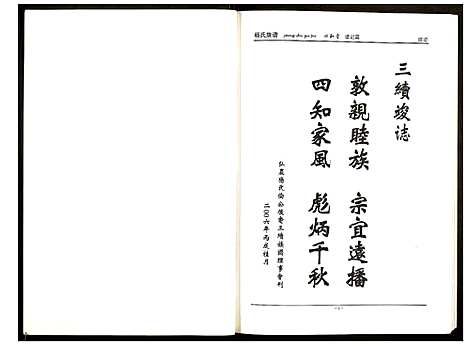 楊氏族谱 yang shi zu pu 四知堂
三續竣誌
敦親睦族 宗宜遠播
四知家風 彪炳千秋
弘農楊氏倫公後裔三續族譜理事會刊
二00六年丙戌桂月